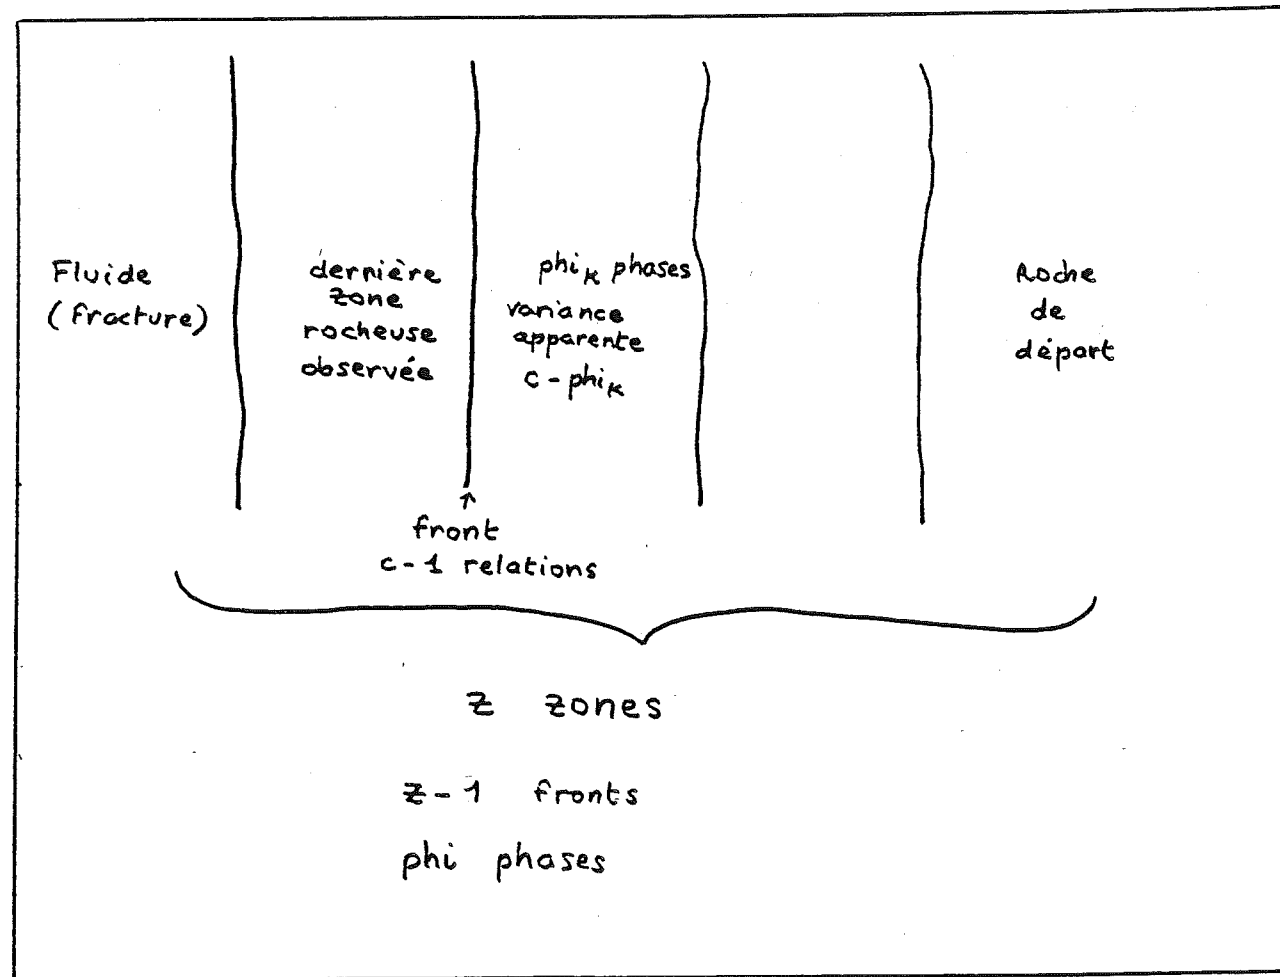 Fluide
(fracture)
dernière
zone
rocheuse
observée
phiK phases
variance
apparente
c-phiK
Roche
de
départ
↑
front
c-1 relations
z zones
z-1 fronts
phi phases